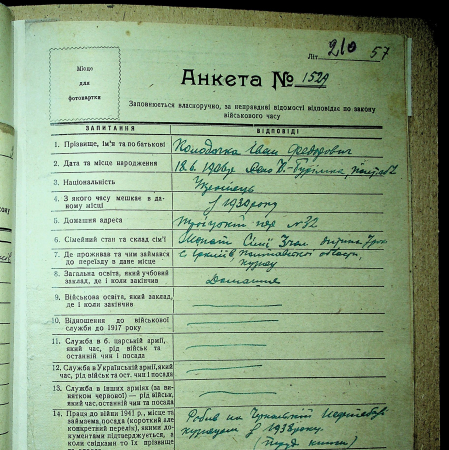 Літ 210 57
Місце
для
фотокартки
Анкета № 1529
Заповнюється власноручно, за неправдиві відомості відповідає по закону
військового часу
ЗАПИТАННЯ ВІДПОВІДІ
1. Прізвище, ім'я та по батькові Колодочка Іван Федорович
2. Дата та місце народження 18.6. село
3. Національність Українець
4. З якого часу мешкає в да-
ному місці з 1930 року
5. Домашня адреса Троїцкий пер №32
6. Сімейний стан та склад сім'ї
7. Де проживав та чим займався
до переїзду в дане місце
8. Загальна освіта, який учбовий
заклад, де і коли закінчив Домашня
9. Військова освіта, який заклад,
де і коли закінчив
10. Відношення до військової
служби до 1917 року
11. Служба в б. царській армії,
який час, рід військ та
останній чин і посада
12. Служба в Українській армії, який
час, рід військ та ост. чин і посада
13. Служба в інших арміях (за ви-
нятком червоної) — рід військ
який час, останній чин та посада
14. Праця до війни 1941 р., місце та
займаєма посада (короткий але
конкретний перелік), якими до-
кументами підтверджується, в
коли свідками то їх прізвище
Робив на
з 1938 року